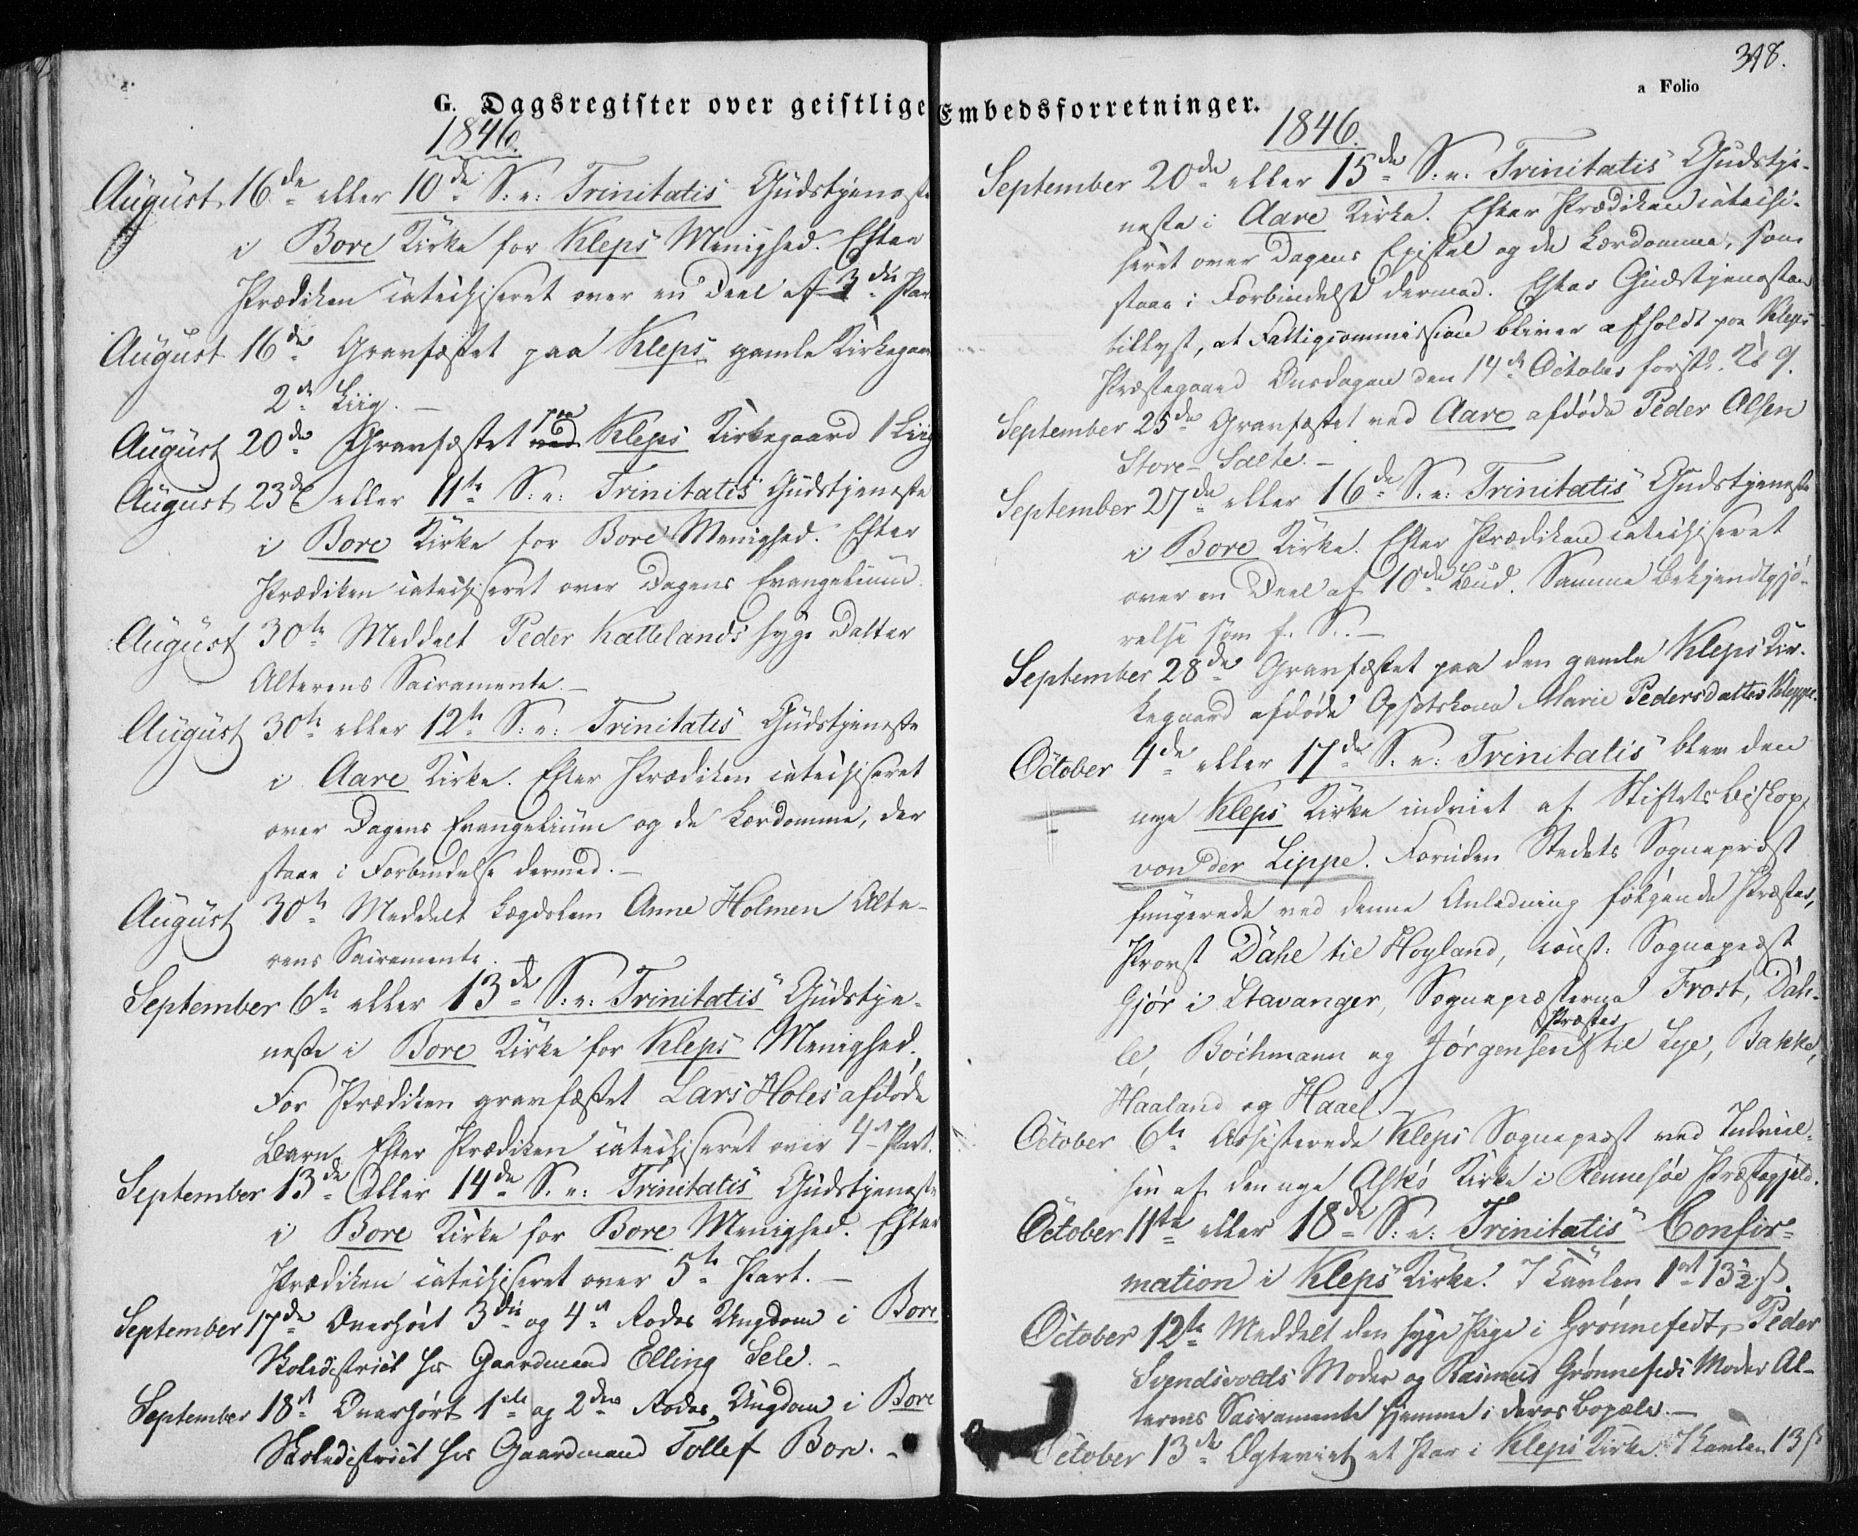 G. Dagsregister over geistlige
1846.
August 16de eller 10de S. e. Trinitatis Gudstjeneste
i Bore Kirke for Kleps Menighed. Efter
Prædiken catechiseret over en Deel af 3die Par
August 16de Gravfæstet paa Kleps gamle Kirkegaar
2de Liig. –
August 20de Gravfæstet paa Kleps Kirkegaard 1 Liig
August 23de eller 11te S. e. Trinitatis Gudstjeneste
i Bore Kirke for Bore Menighed. Efter
Prædiken catechiseret over Dagens Evangelium.
August 30te Meddelt Peder Kattelands syge Datter
Alterens Sacramente. –
August 30te eller 12te S. e. Trinitatis Gudstjeneste
i Aare Kirke. Efter Prædiken catechiseret
over Dagens Evangelium og de Lærdomme, der
staae i Forbindelse dermed. –
August 30te Meddelt Lægdslem Anne Holmen Alte-
rens Sacramente. –
September 6te eller 13de S. e. Trinitatis Gudstje-
neste i Bore Kirke for Kleps Menighed.
Før Prædiken gravfæstet Lars Holes afdøde
Barn. Efter Prædiken catechiseret over 4de Part.
September 13de eller 14de S. e. Trinitatis Gudstjeneste
i Bore Kirke for Bore Menighed. Efter
Prædiken catechiseret over 5te Part. –
September 17de Overhørt 3die og 4de Rodes Ungdom i Bore
Skoledistrict hos Gaardmand Elling Sele. –
September 18de Overhørt 1ste og 2den Rodes Ungdom i Bore
Skoledistrict hos Gaardmand Tollef Bore. –
Embedsforretninger.
a Folio
318.
1846.
September 20de eller 15de S. e. Trinitatis Gudstje-
neste i Aare Kirke. Efter Prædiken catechi-
seret over Dagens Epistel og de Lærdomme, som
staae i Forbindelse dermed. Efter Gudstjenesten
tillyst, at Fattigcommission bliver afholdt paa Kleps
Præstegaard Onsdagen den 14de October førstk. Kl 9.
September 25de Gravfæstet ved Aare afdøde Peder Olsen
Store-Salte. –
September 27de eller 16de S. e. Trinitatis Gudstjeneste
i Bore Kirke. Efter Prædiken catechiseret
over en Deel af 10de Bud. Samme Bekjendtgjø-
relse som f. S. –
September 28de Gravfæstet paa den gamle Kleps Kir-
kegaard afdøde Opsidskone Marie Pedersdatter Kleppe.
October 4de eller 17de S. e. Trinitatis blev den
nye Kleps Kirke indviet af Stiftets Biskop,
von der Lippe. Foruden Stedets Sognepræst
fungerede ved denne Anledning følgende Præster,
Provst Dahl til Høyland, const. Sognepræst
Gjør i Stavanger, Sognepræsterne Frost, Dah-
le, Bochmann og Jørgensen Præster til Lye, Bakke,
Haaland og Haael.
October 6te Assisterede Kleps Sognepræst ved Indviel-
sen af den nye Askø Kirke i Rennesøe Præstegjeld.
October 11te eller 18de S. e. Trinitatis Confir-
mation i Kleps Kirke. I Tavlen 1 ort 13½ ß.
October 12te Meddelt den syge Pige i Grønnefedt, Peder
Svendsvolds Moder og Rasmus Grønnefeds Moder Al-
terens Sacramente hjemme i deres Bopæle. –
October 13de Egteviet et Par i Kleps Kirke. I Tavlen 13 ß